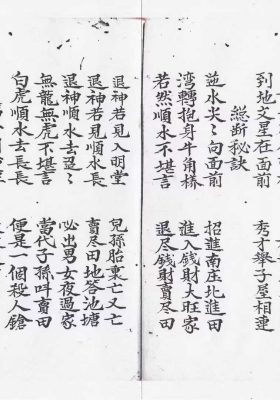 到地文星在面前
秀才舉子星相連
總断秘訣
逆水尖尖向面前
招進南庄北進田
湾轉抱身牛角橋
進入钱財大旺家
若然順水不堪言
退尽钱財賣尽田
退神若見入明堂
兒孫胎棄亡又亡
退神若見順水流
賣尽田地答池塘
退神順水去迢迢
必出男女夜過家
無龍無虎不堪言
當代子孫呌賣田
白虎順水去長長
便是一個殺人鎗